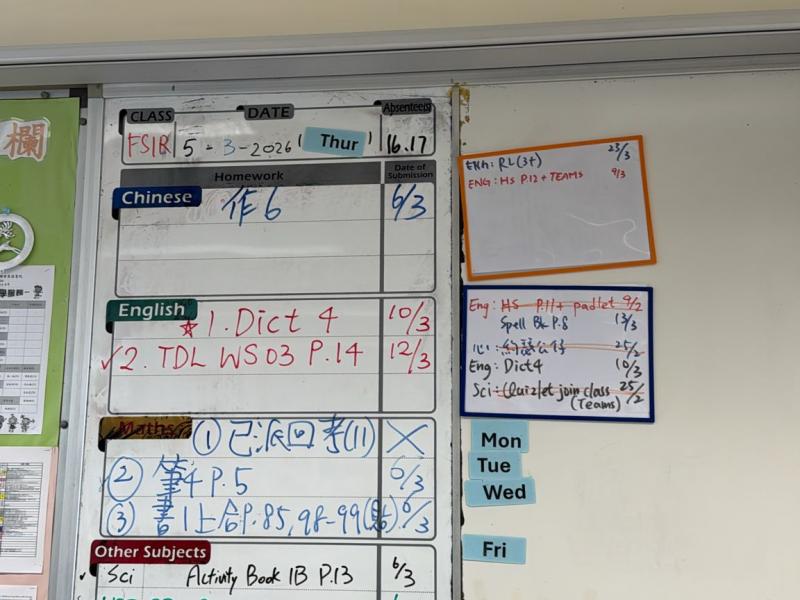 欄
CLASS DATE Absentee(s)
FSIR 5-3-2026 (Thur) 16.17
Homework Date of Submission
Chinese 作6 6/3
English ☆1. Dict 4 10/3
✓2. TDL WS03 P.14 12/3
Maths ① 已派回考(11) ×
② 筆4 P.5 6/3
③ 書1上冶P.85, 98-99 6/3
Other Subjects
✓ Sci Activity Book 1B P.13 6/3
ENG: RL(3+) 23/3
ENG: HS P.12 + TEAMS 9/3
Eng: HS P.11+ padlet 9/2
Spell Bk P.8 13/3
25/2
Eng: Dict4 10/3
Sci: Quizlet join class (Teams) 25/2
Mon
Tue
Wed
Fri